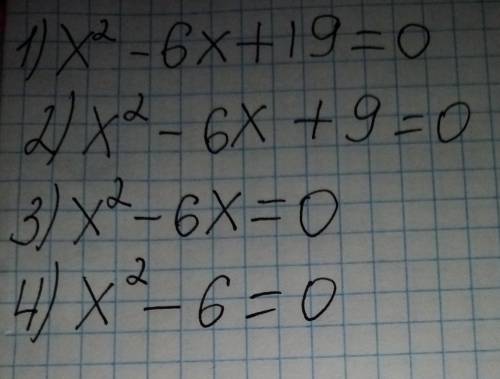 1) x² - 6x + 19 = 0
2) x² - 6x + 9 = 0
3) x² - 6x = 0
4) x² - 6 = 0